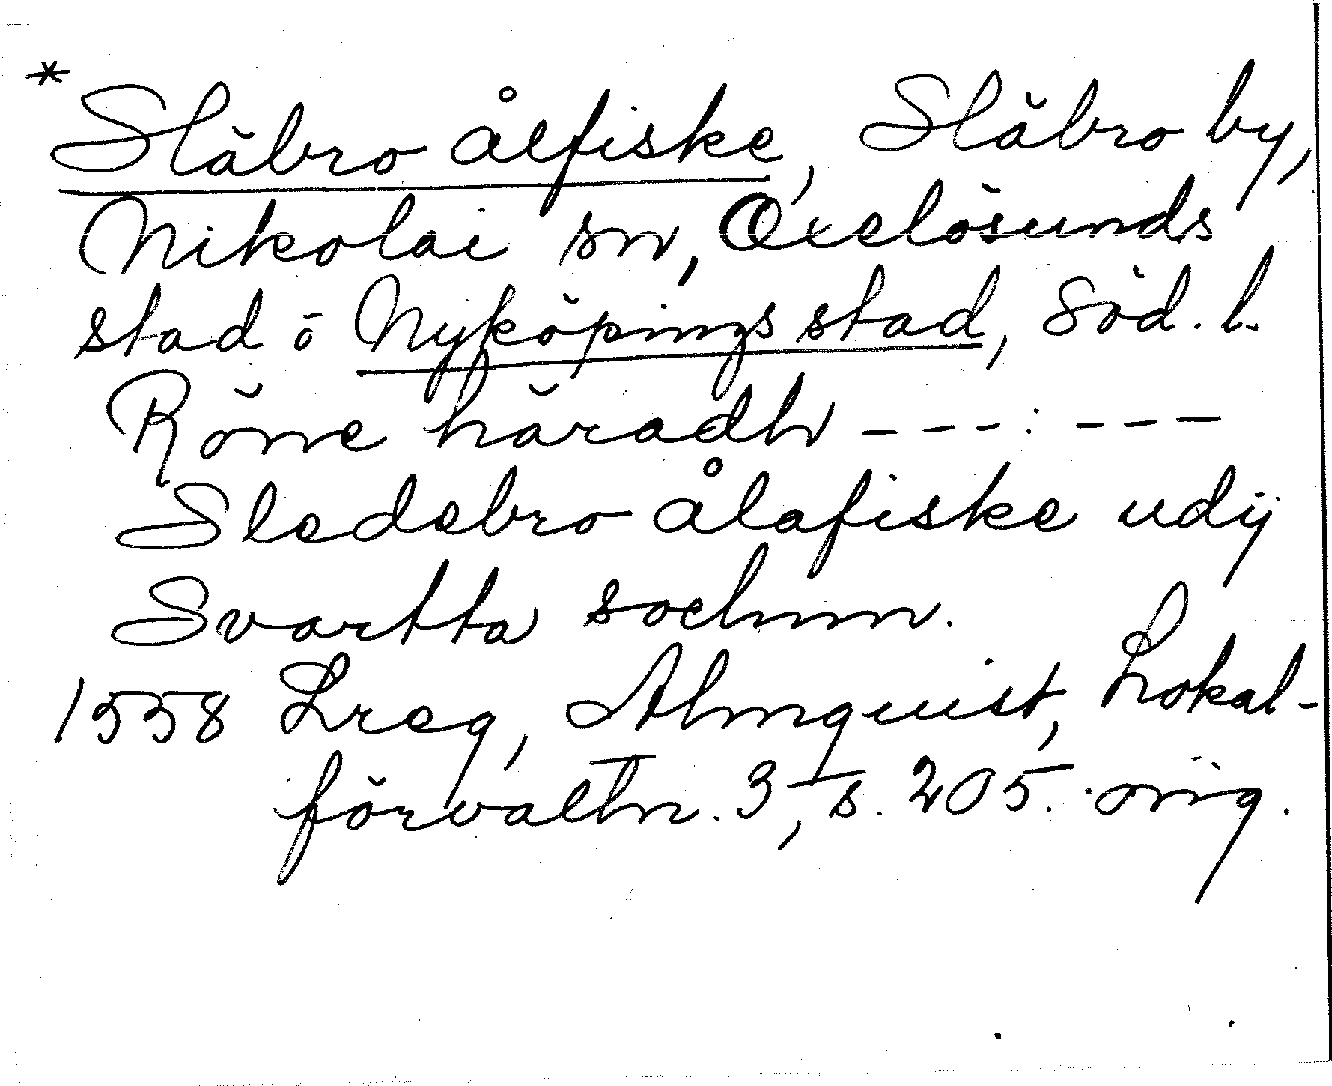 * Släbro ålfiske, Släbro by,
Nikolai sn, Oxelösunds
stad o Nyköpings stad, Söd. l.
Röne häradh --- : ---
Sledebro ålafiske udij
Svartta sochnn.
1558 Lreg, Almquist, Lokal-
förvaltn. 3, s. 205. orig.